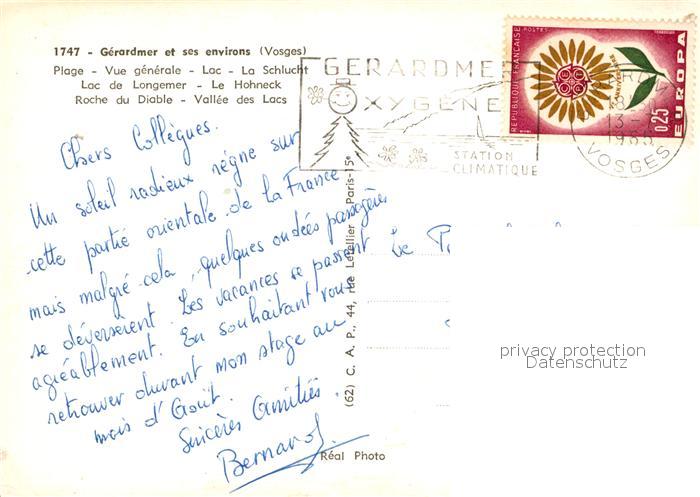 1747 - Gérardmer et ses environs (Vosges)
Plage - Vue générale - Lac - La Schlucht
Lac de Longemer - Le Hohneck
Roche du Diable - Vallée des Lacs
GERARDMER
OXYGENE
STATION
CLIMATIQUE
REPUBLIQUE FRANÇAISE
POSTES
CEPT
ANNIVERSAIRE
0,25
EUROPA
VOSGES
Chers Collègues.
Un soleil radieux règne sur
cette partie orientale de la France
mais malgré cela, quelques ondées passagères
se déversèrent. Les vacances se passent
agréablement. En souhaitant vous
retrouver durant mon stage au
mois d'Août.
Sincères Amitiés.
Bernard
(62) C. A. P., 44, rue Letellier - Paris-15e
Réal Photo
Le
privacy protection
Datenschutz